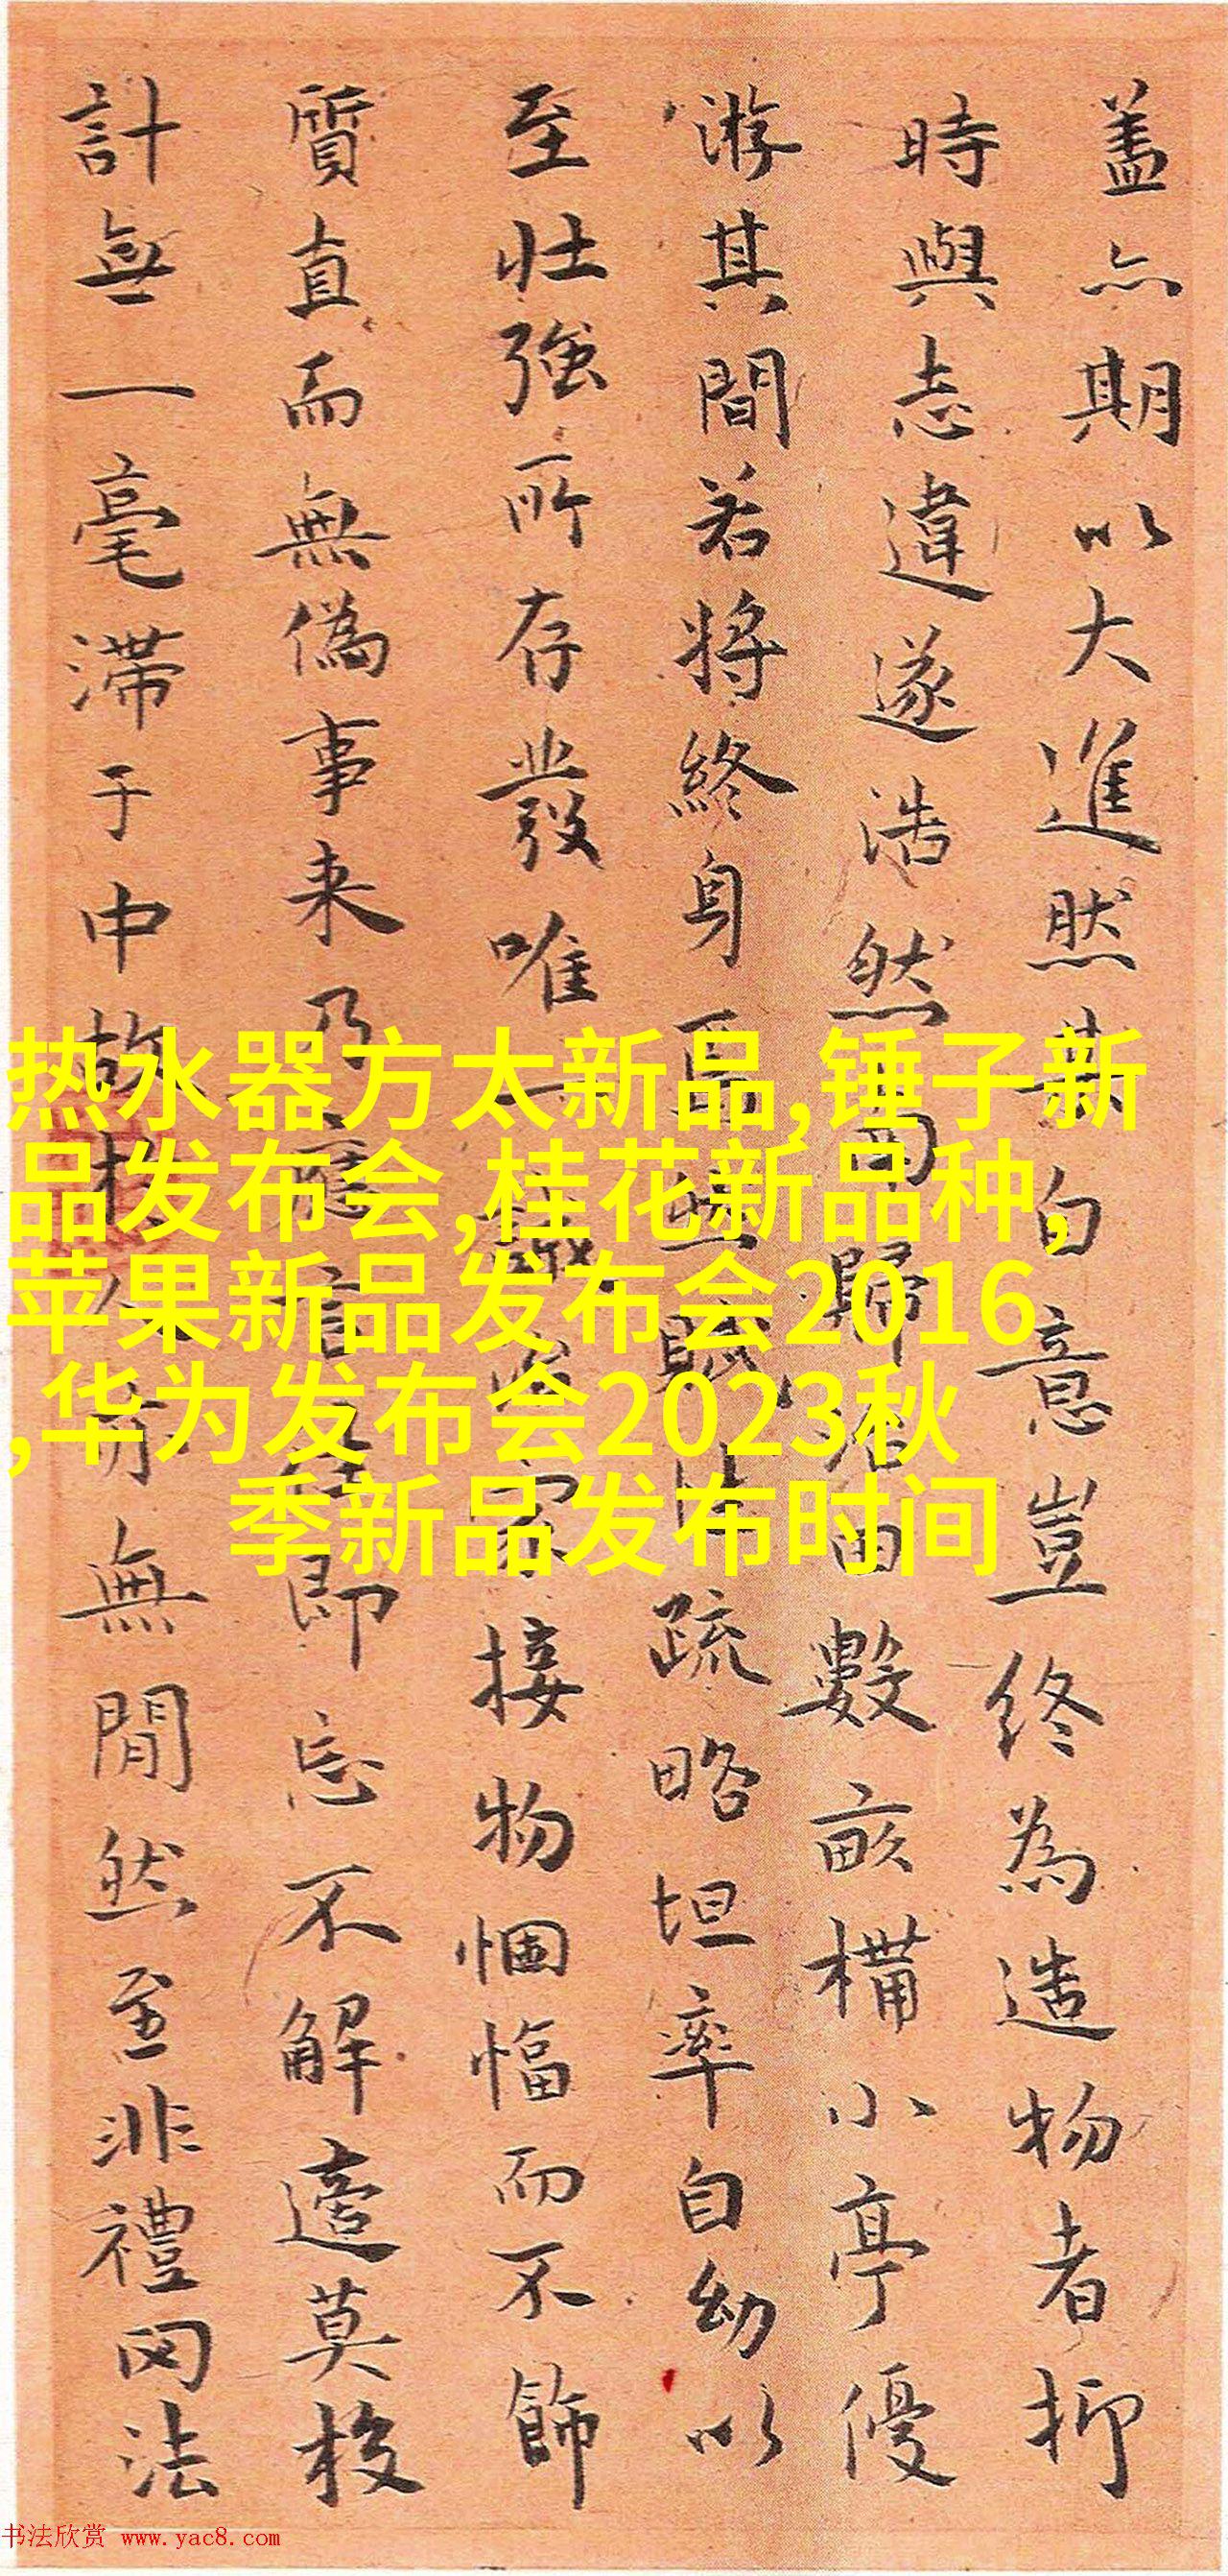 蓋亦期以大進然其自意豈終為造物者抑
時與志違遂浩然而歸治田數畝構小亭優
游其間若將終身焉無賦性疏略坦率自幼以
至壯強所存發唯一誠家接物悃愊而不飾
質直而無偽事来乃應言在即忘不解適莫校
計無一毫滞于中故無閒然至非禮罔法
热水器方太新品,锤子新
品发布会,桂花新品种,
苹果新品发布会2016
,华为发布会2023秋
季新品发布时间
书法欣赏 www.yac8.com